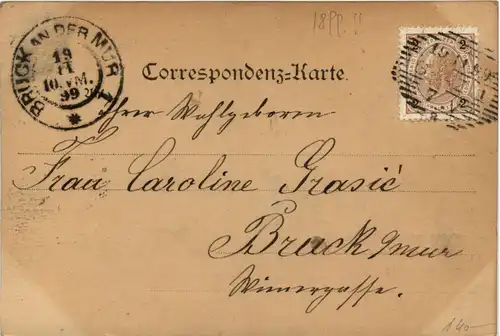 1899 !!
BRUCK AN DER MUR
19
11
10. VM.
99
1
*
Correspondenz-Karte.
Ihrer Wohlgeboren
Frau Caroline Grasić
Bruck a/mur
Wienergasse.
140